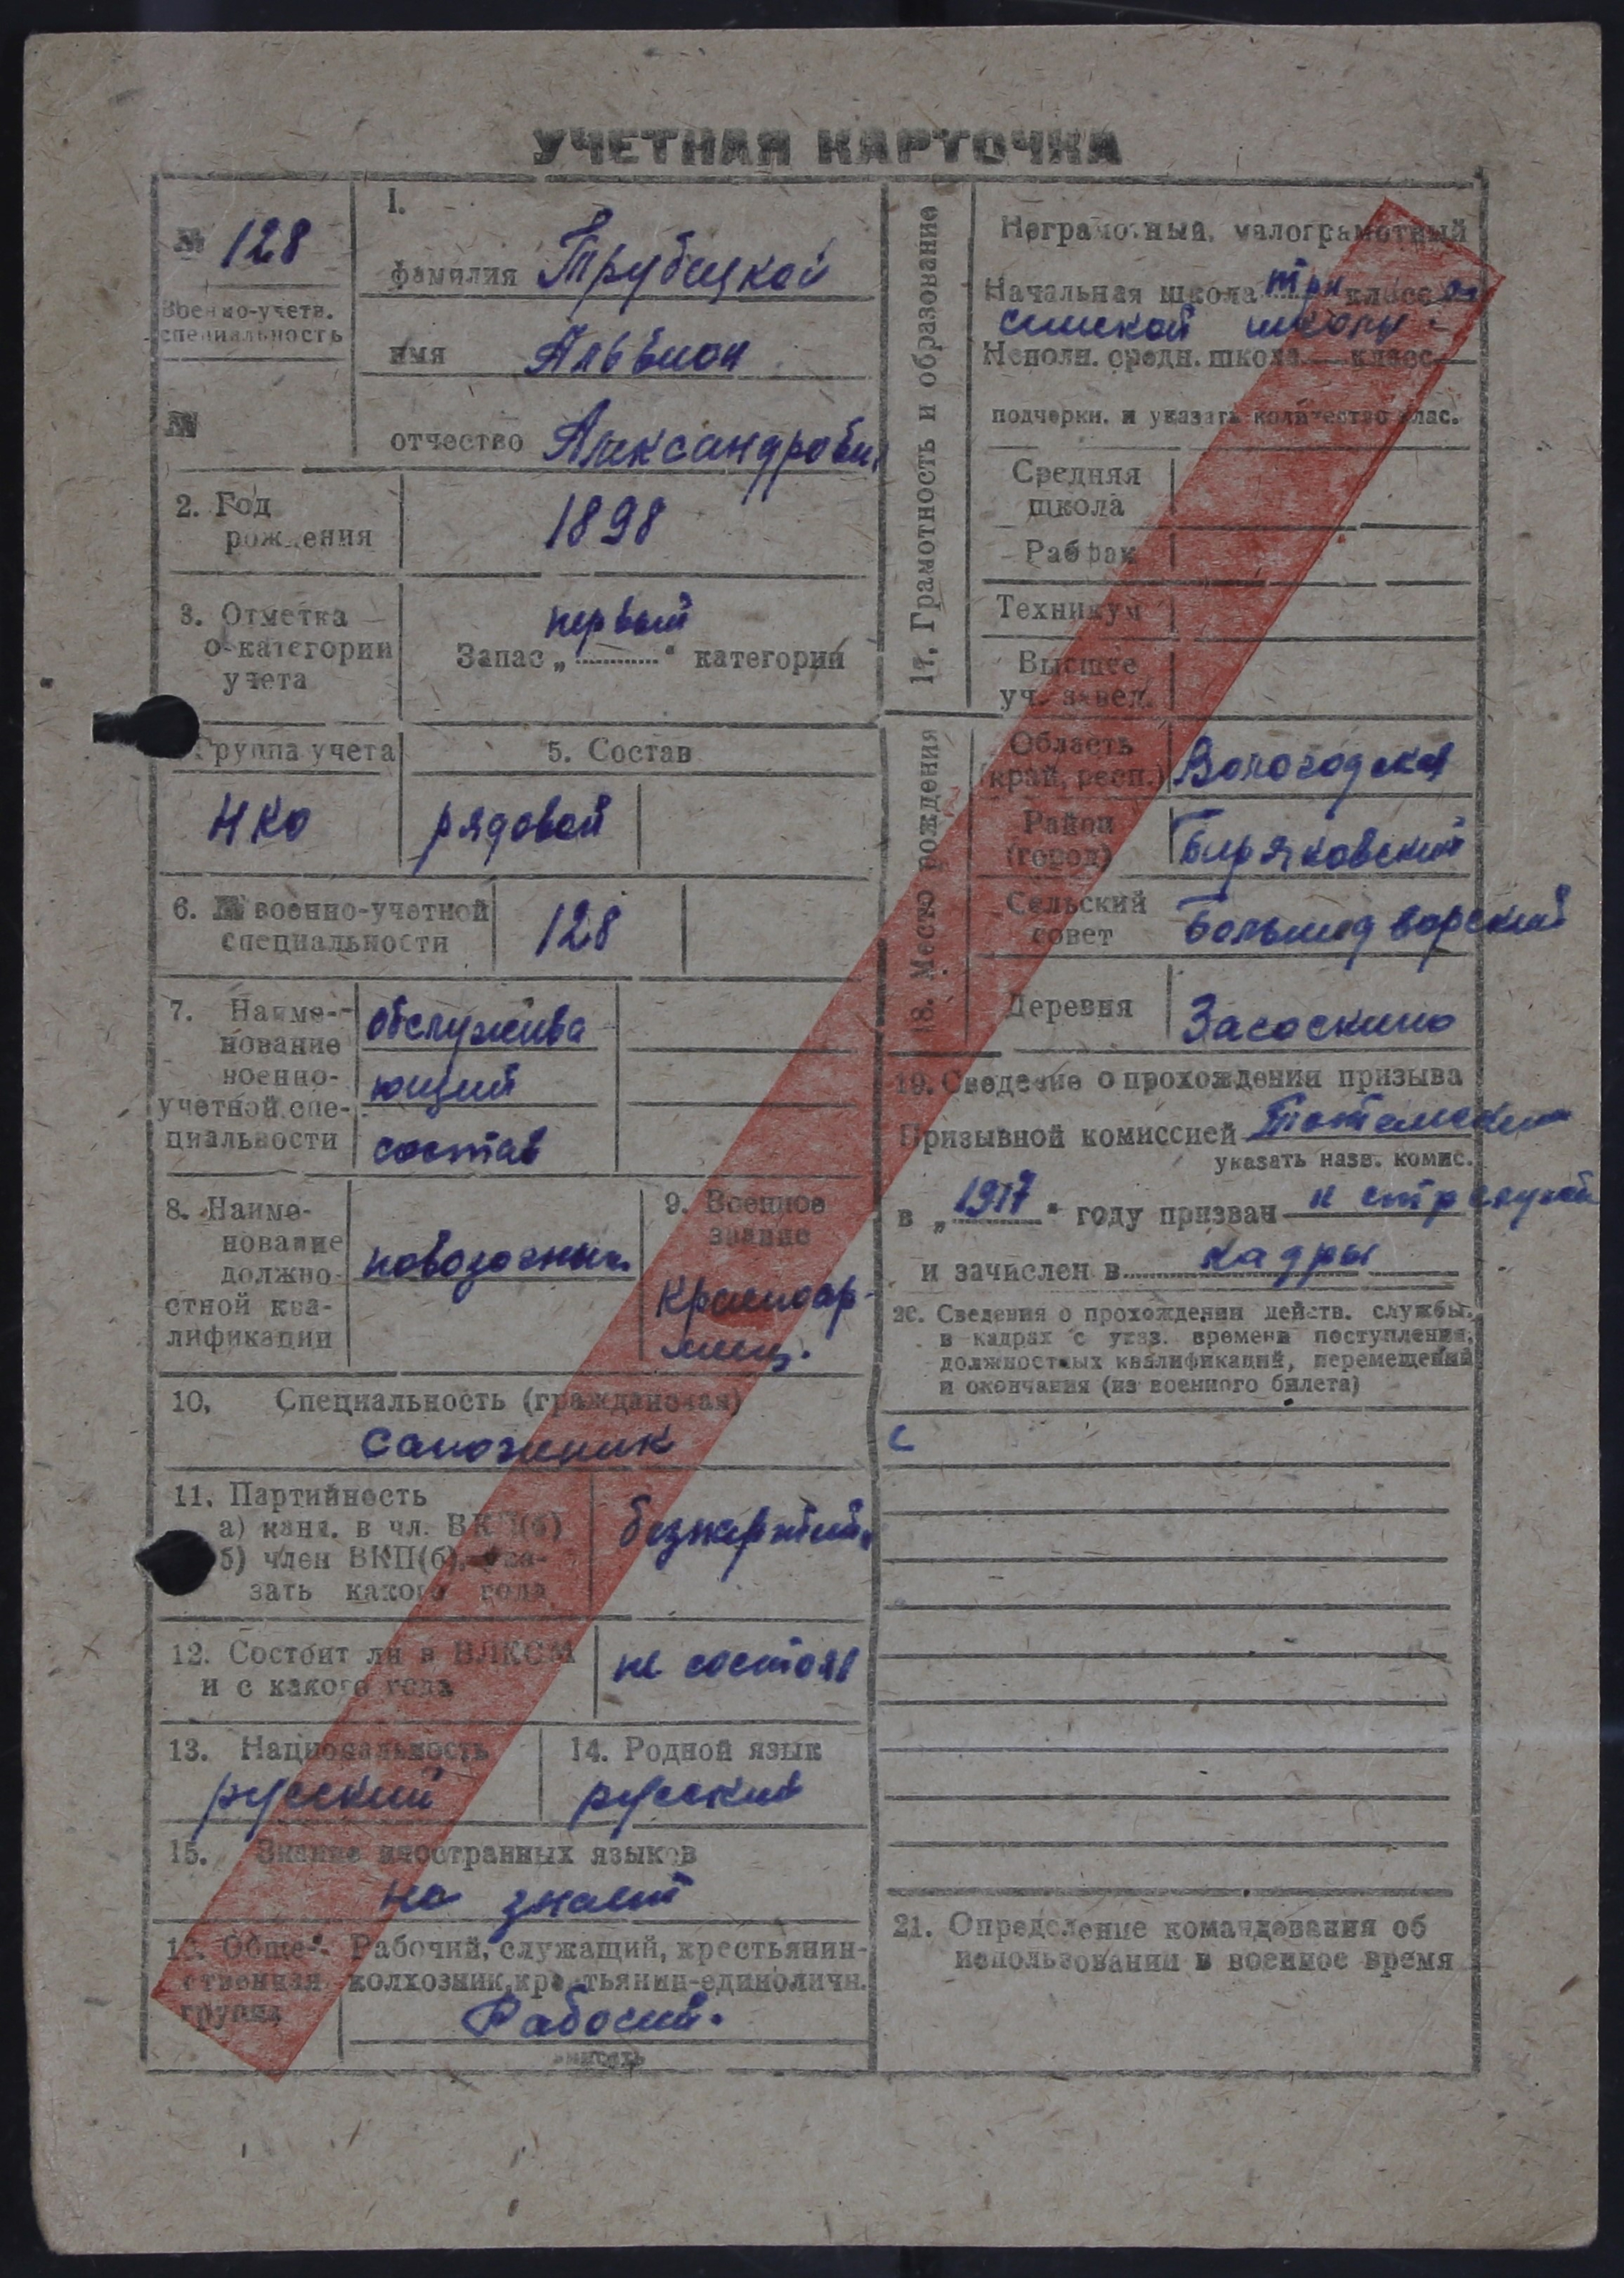 УЧЕТНАЯ КАРТОЧКА
№ 128
Военно-учетн.
специальность
№
1.
фамилия Трубецкой
имя Альвион
отчество Александрови
2. Год
рождения
1898
3. Отметка
о категории
учета
первый
Запас „............“ категории
Группа учета
НКО
5. Состав
рядовой
6. № военно-учетной
специальности
128
7. Наиме-
нование
военно-
учетной спе-
циальности
обслужива
ющий
состав
8. Наиме-
нование
должно-
стной ква-
лификации
повозочный
9. Военное
звание
Красноар-
меец.
10. Специальность (гражданская)
сапожник
11. Партийность
а) канд. в чл. ВКП(б)
б) член ВКП(б), ука-
зать какого года
безпартий
12. Состоит ли в ВЛКСМ
и с какого года
не состоял
13. Национальность
русский
14. Родной язык
русский
15. Знание иностранных языков
не знает
16. Обще-
ственная
группа
Рабочий, служащий, крестьянин-
колхозник, крестьянин-единоличн.
Рабочий.
17. Грамотность и образование
Неграмотный, малограмотный
Начальная школа три класса
школы
Неполн. средн. школа — класс —
подчеркн. и указать количество клас.
Средняя
школа
Рабфак
Техникум
Высшее
уч. завед.
18. Место рождения
Область
(край, респ.)
Вологодская
Район
(город)
Биряковский
Сельский
совет
Большедворский
Деревня
Засоскино
19. Сведение о прохождении призыва
Призывной комиссией Тотемский
указать назв. комис.
в „1917“ году призван к стр службе
и зачислен в кадры
20. Сведения о прохождении действ. службы.
в кадрах с указ. времени поступления,
должностных квалификаций, перемещений
и окончания (из военного билета)
с
21. Определение командования об
использовании в военное время